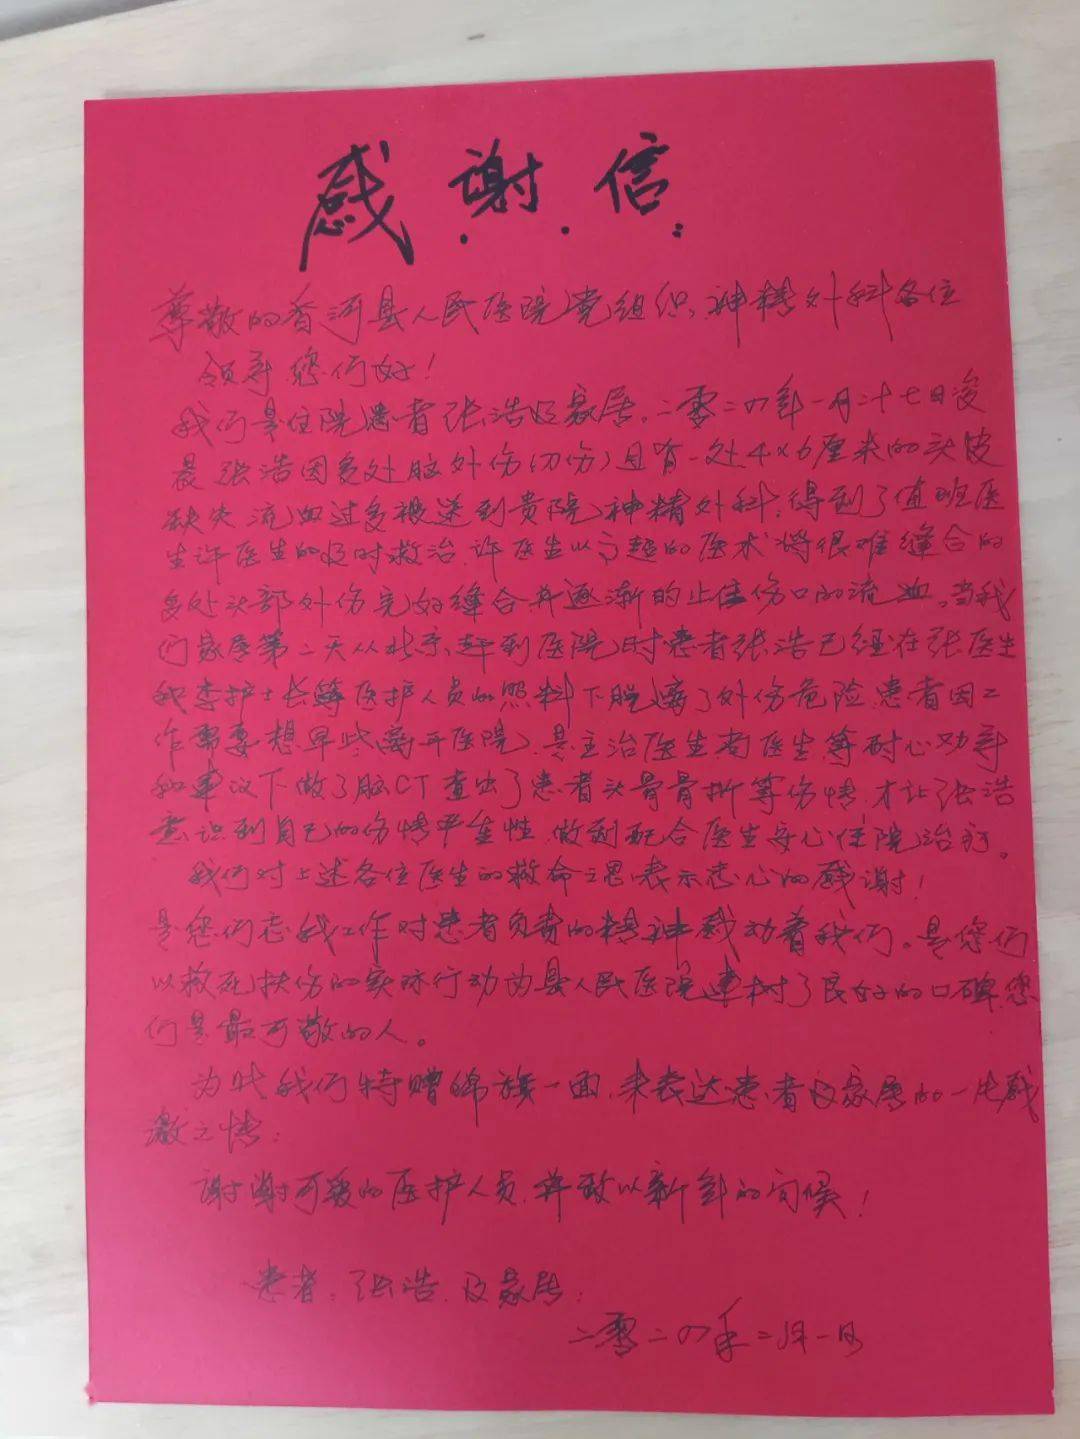 感谢信:
尊敬的香河县人民医院党组织、神精外科各位
领导您们好!
我们是住院患者张浩及家属。二零二四年一月二十七日凌
晨张浩因多处脑外伤(切伤)且有一处4×6厘米的头皮
缺失流血过多被送到贵院神精外科,得到了值班医
生许医生的及时救治,许医生以高超的医术将很难缝合的
多处头部外伤完好缝合并逐渐的止住伤口的流血。当我
们家属第二天从北京赶到医院时患者张浩已经在张医生
和李护士长等医护人员的照料下脱离了外伤危险,患者因工
作需要想早些离开医院,是主治医生尚医生等耐心劝导
和建议下做了脑CT查出了患者头骨骨折等伤情,才让张浩
意识到自己的伤情严重性,做到配合医生安心住院治疗。
我们对上述各位医生的救命之恩表示忠心的感谢!
是您们忘我工作对患者负责的精神感动着我们。是您们
以救死扶伤的实际行动为县人民医院建树了良好的口碑,您
们是最可敬的人。
为此我们特赠锦旗一面,来表达患者及家属的一片感
激之情:
谢谢可敬的医护人员,并致以新年的问候!
患者:张浩及家属:
二零二四年二月一日